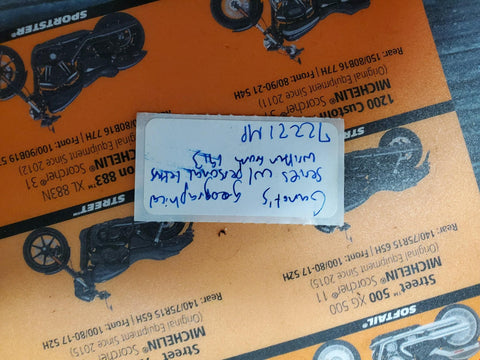 SPORTSTER™
Rear: 150/80B16 77H | Front: 80/90-21 54H
(Original Equipment Since 2011)
MICHELIN® Scorcher® 31
1200 Custom
/80B16 77H | Front: 100/90B19 57
(Original Equipment Since 2012)
MICHELIN® Scorcher® 31
Iron 883™ XL 883N
STREET™
STREET™
Ganot's
geographical
series w/ personal letters
within book 1913
72221 MP
Rear: 140/75R15 65H | Front: 100/80-17 52H
(Original Equipment Since 2015)
MICHELIN® Scorcher® 11
Street™ 500 XG 500
Rear: 140/75R15 65H | Front: 100/80-17 52H
(Original Equipment Since 2015)
MICHELIN® Scorcher® 11
Street
SOFTAIL®